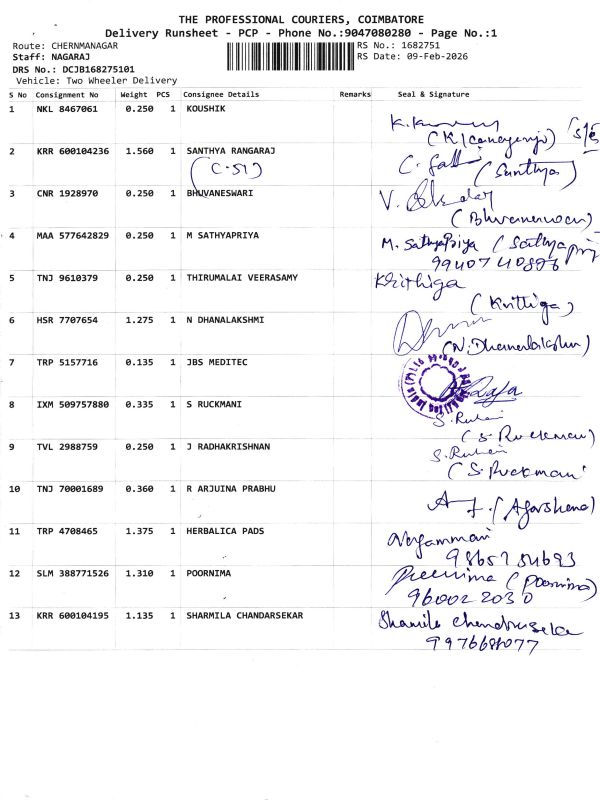 THE PROFESSIONAL COURIERS, COIMBATORE
Delivery Runsheet - PCP - Phone No.:9047080280 - Page No.:1
Route: CHERNMANAGAR
RS No.: 1682751
Staff: NAGARAJ
RS Date: 09-Feb-2026
DRS No.: DCJB168275101
Vehicle: Two Wheeler Delivery
S No Consignment No Weight PCS Consignee Details Remarks Seal & Signature
1 NKL 8467061 0.250 1 KOUSHIK
2 KRR 600104236 1.560 1 SANTHYA RANGARAJ
(C-51) (Santhya)
3 CNR 1928970 0.250 1 BHUVANESWARI
V.
4 MAA 577642829 0.250 1 M SATHYAPRIYA
M. Sathyapriya (Sathyapriy
9940740896
5 TNJ 9610379 0.250 1 THIRUMALAI VEERASAMY
Krithiga
(Krithiga)
6 HSR 7707654 1.275 1 N DHANALAKSHMI
(N. Dhanalakshmi)
7 TRP 5157716 0.135 1 JBS MEDITEC
8 IXM 509757880 0.335 1 S RUCKMANI
(S. Ruckmani)
9 TVL 2988759 0.250 1 J RADHAKRISHNAN
(S. Ruckmani
10 TNJ 70001689 0.360 1 R ARJUINA PRABHU
11 TRP 4708465 1.375 1 HERBALICA PADS
12 SLM 388771526 1.310 1 POORNIMA
Poornima (Poornima)
960022030
13 KRR 600104195 1.135 1 SHARMILA CHANDARSEKAR